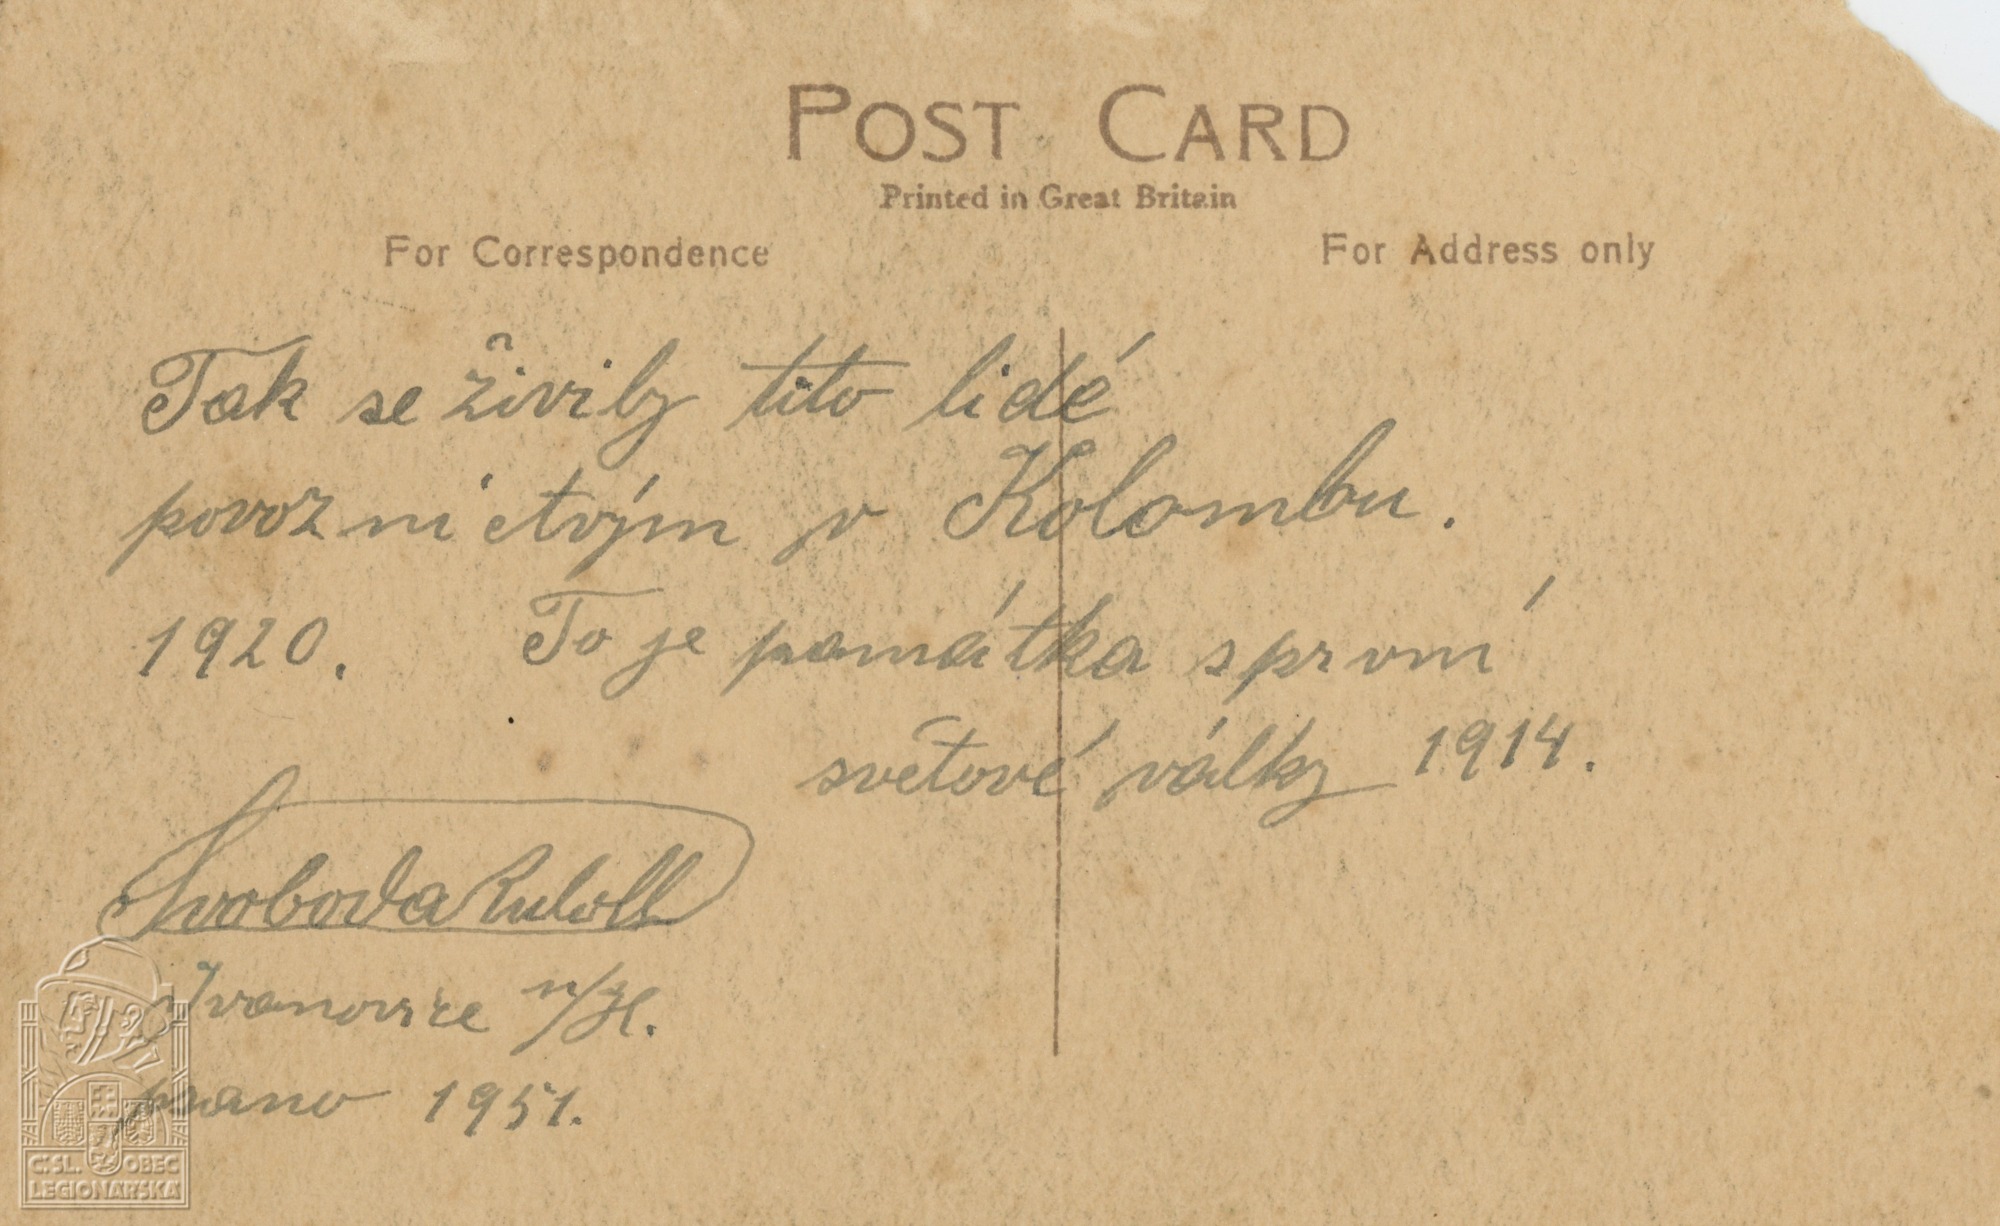 POST CARD
Printed in Great Britain
For Correspondence
For Address only
Tak se živily tito lidé
povoznictvým v Kolombu.
1920. To je památka s první
světové války 1914.
Svoboda Rudolf
Ivanovice n/H.
psano 1951.
ČSL. OBEC
LEGIONÁŘSKÁ